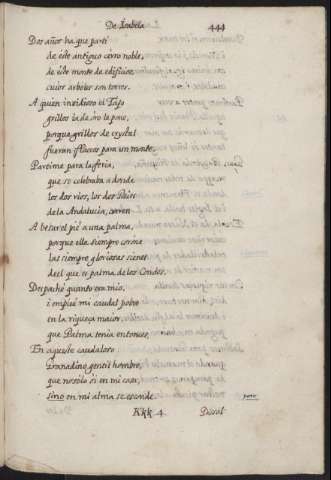 De Isabela 444
Dos años ha que parti
de este antiguo cerro noble,
de este monte de edificios
cuios arboles son torres.
A quien invidioso el Tajo
grillos le de oro le pone,
porque grillos de crystal
fueran flacos para un monte.
Partime para la feria,
que se celebraba adonde
los dos rios, los dos
de la Andalucia, corren
A besar el pie a una palma,
porque ella siempre corone
las siempre gloriosas sienes
de el que es palma de los Condes.
Despaché quanto era mio,
i empleé mi caudal pobre
en la riqueza maior,
que Palma tenia entonces,
En aqueste caudaloso
Granadino gentil hombre,
que no solo si en mi casa,
sino en mi alma se esconde. pero
Kkk 4